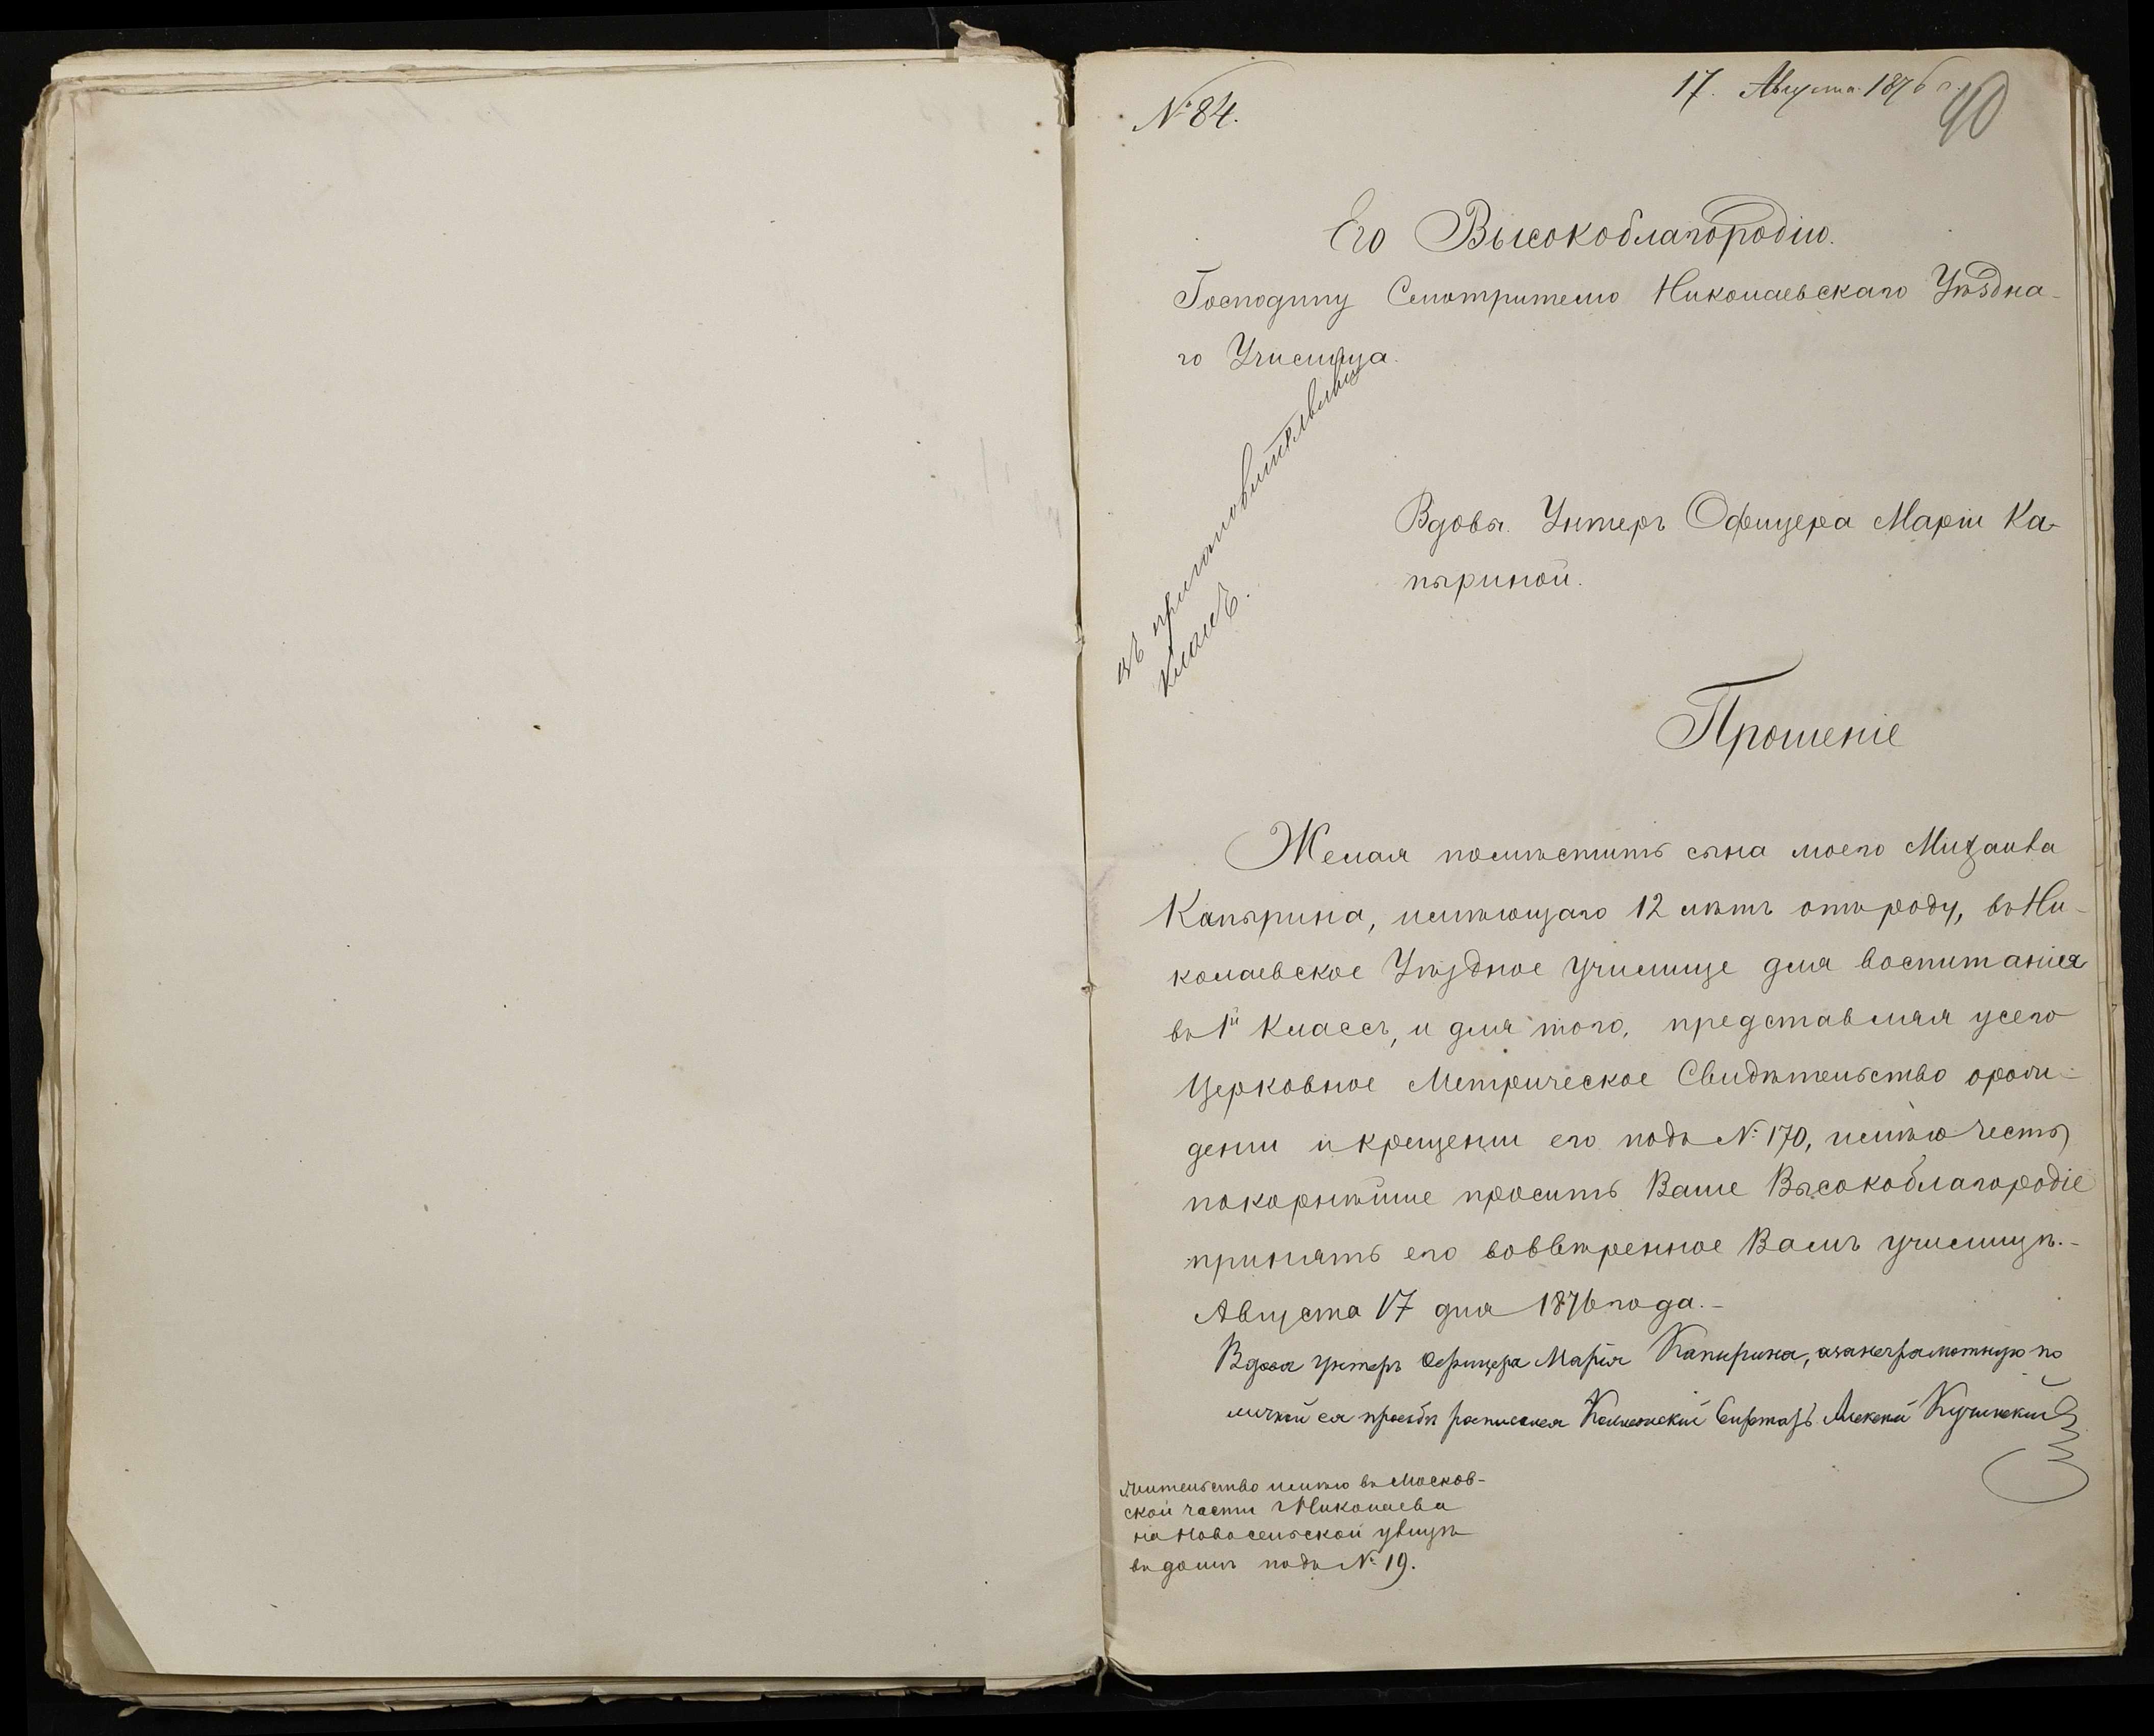 № 84.
17. Августа 1876 г.
40
Его Высокоблагородію.
Господину Смотрителю Николаевскаго Уѣздна-
го Училища.
въ приготовительный
классъ.
Вдовы Унтеръ Офицера Маріи Ка-
пыриной.
Прошеніе
Желая помѣстить сына моего Михаила
Капырина, имѣющаго 12 лѣтъ отъ роду, въ Ни-
колаевское Уѣздное училище для воспитанія
въ 1й классъ, и для того, представляя у сего
Церковное Метрическое Свидѣтельство о рож-
деніи и крещеніи его подъ № 170, имѣю честь
покорнѣйше просить Ваше Высокоблагородіе
принять его во ввѣренное Вамъ училищѣ.-
Августа 17 дня 1876 года.-
Вдова унтеръ Офицера Марія Капырина, а за неграмотную по
личной ея просьбѣ расписался Алексѣй
Жительство имѣю въ Москов-
ской части г Николаева
на Новосельской улицѣ
въ домѣ подъ № 19.